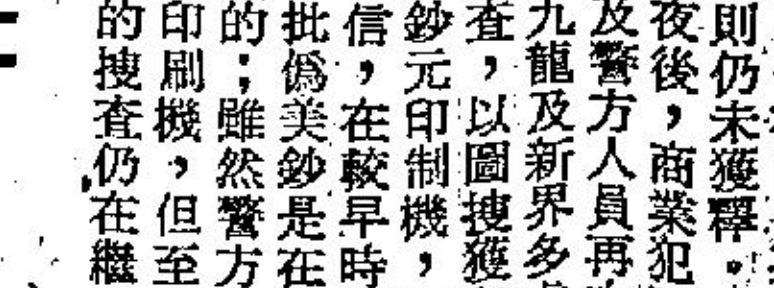 則仍未獲釋。
夜後，商業犯
及警方人員再
九龍及新界多
查，以圖搜獲
鈔元印制機，
信，在較早時
批偽美鈔是在
的；雖然警方
印刷機，但至
的搜查仍在繼